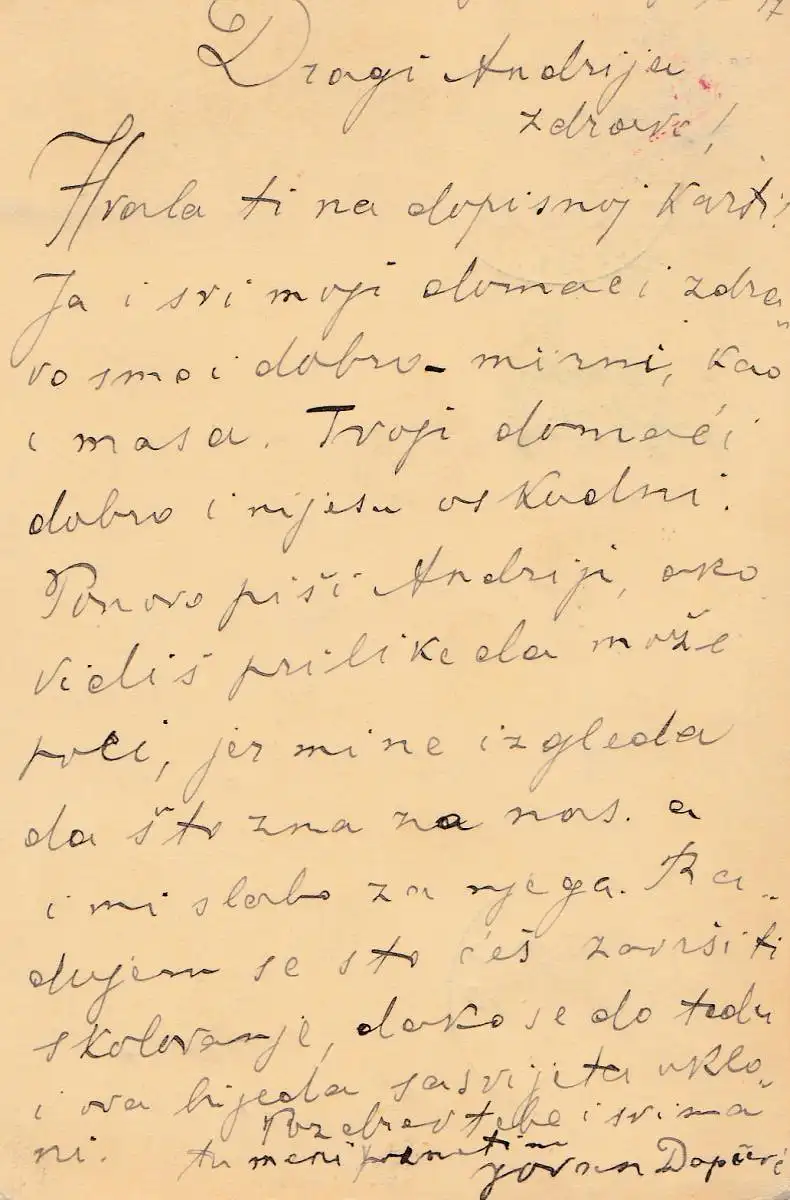 17
Dragi Andrija
zdravo!
Hvala ti na dopisnoj karti!
Ja i svi moji domaći zdra„
vo smo i dobro - mirni, kao
i masa. Tvoji domaći
dobro i nijesu oskudni.
Ponovo piši Andriji, ako
vidiš prilike da može
poći, jer mi ne izgleda
da što zna za nas. a
i mi slabo za njega. Ra„
dujem se sto ćeš završiti
skolovanje, dako se do tada
i ova bijeda sa svijeta uklo„
ni. Pozdrav tebe i svima
tu meni poznatim
Jovan Dapčević